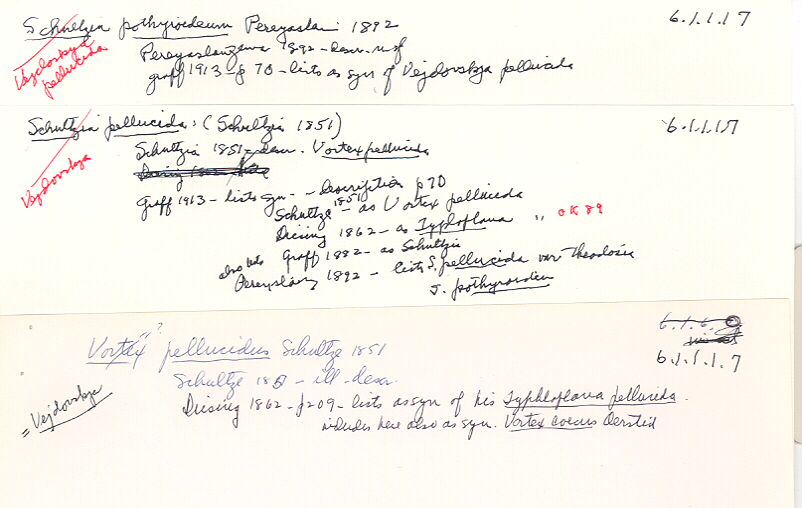 Schultzia pothyroedeum Pereyaslaw 1892 6.1.1.17
Vejdovskya pellucida
Pereyaslawzewa 1892 - descr. n. sf
Graff 1913 - p 70 - lists as syn of Vejdovskya pellucida
Schultzia pellucida: (Schultzia 1851) 6.1.1.17
Vejdovskya
Schultzia 1851 - descr. Vortex pellucida
Graff 1913 - lists syn - - Description p 70
Schultze 1851 - as Vortex pellucida
Diesing 1862 - as Typloplana " OK 89
also lists Graff 1882 - as Schultzia
Pereyslawz 1892 - lists S. pellucida var Theodosia
J. pothyroideum
6.1.6.
Vortex pellucidus Schultze 1851 "?
6.1.1.1.7
Schultze 1851 - ill. descr.
Diesing 1862 - p 209 - lists as syn of his Typhloplana pellucida.
= Vejdovskya
includes here also as syn. Vortex coecus Oersted